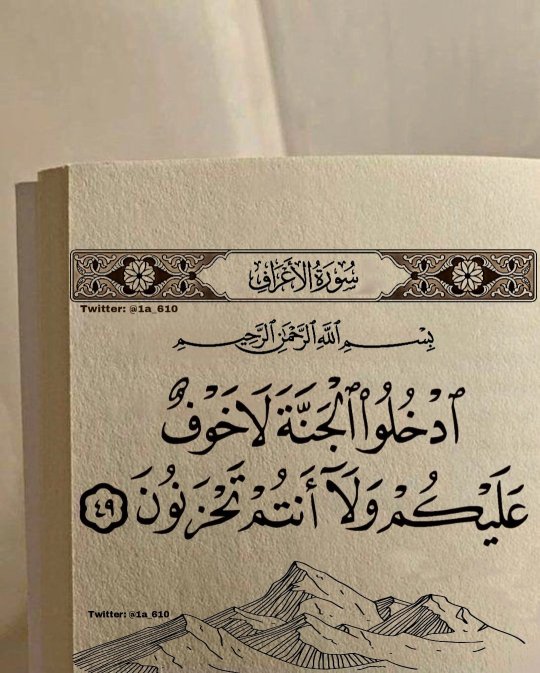 سُورَةُ الأَعْرَافِ
Twitter: @1a_610
بِسْمِ اللَّهِ الرَّحْمَٰنِ الرَّحِيمِ
ٱدْخُلُوا۟ ٱلْجَنَّةَ لَا خَوْفٌ
عَلَيْكُمْ وَلَآ أَنتُمْ تَحْزَنُونَ ٤٩
Twitter: @1a_610